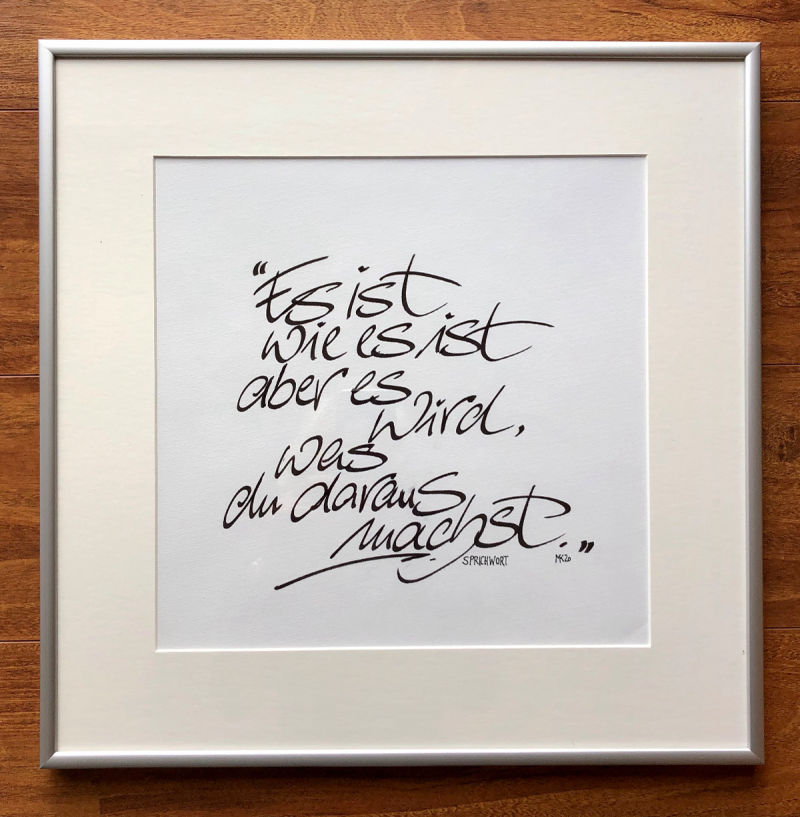 “Es ist
wie es ist
aber es
wird,
was
du daraus
machst.”
SPRICHWORT MK20